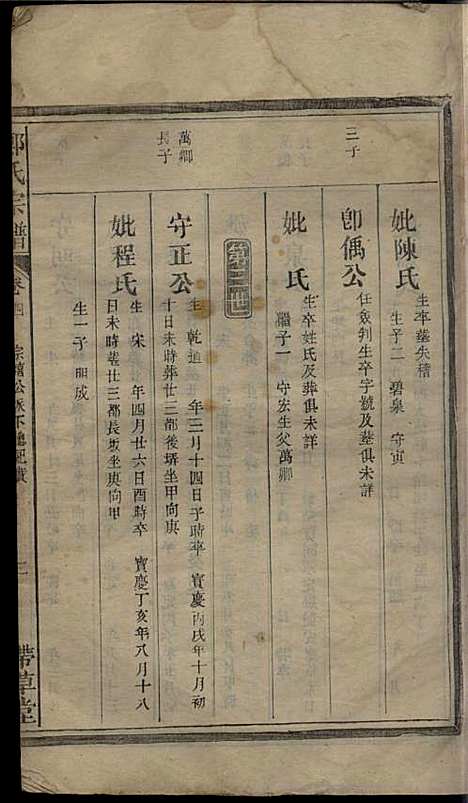 妣陳氏
生卒墓失稽
生子二 碧梟 守寅
三子
卽偶公
任僉判生卒字號及墓俱未詳
妣 氏
生卒姓氏及葬俱未詳
繼子一 守宏生父萬卿
第三世
萬卿
長子
守正公
生 乾道 年三月十四日子時卒 寶慶丙戌年十月初
十日未時葬廿三都後塝坐甲向庚
妣程氏
生 宋 年四月廿六日酉時卒 寶慶丁亥年八月十八
日未時葬廿三都長坂坐庚向甲
生一子 明成
氏宗譜
卷四 宗禧公派下總紀實 三
帶草堂